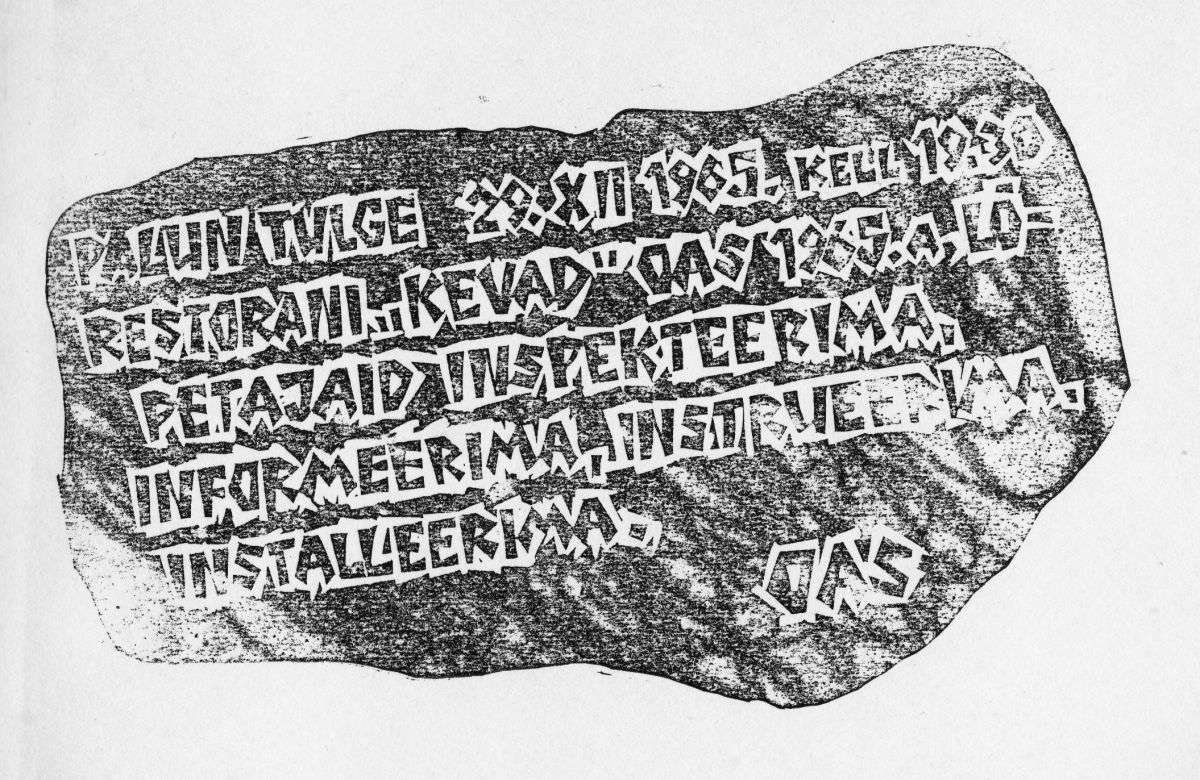 PALUN TULGE 29.XII 1965. KELL 19.30
RESTORANI „KEVAD" OAS 1965.A. LÕ=
PETAJAID INSPEKTEERIMA.
INFORMEERIMA, INSTRUEERIMA.
INSTALLEERIMA.
OAS